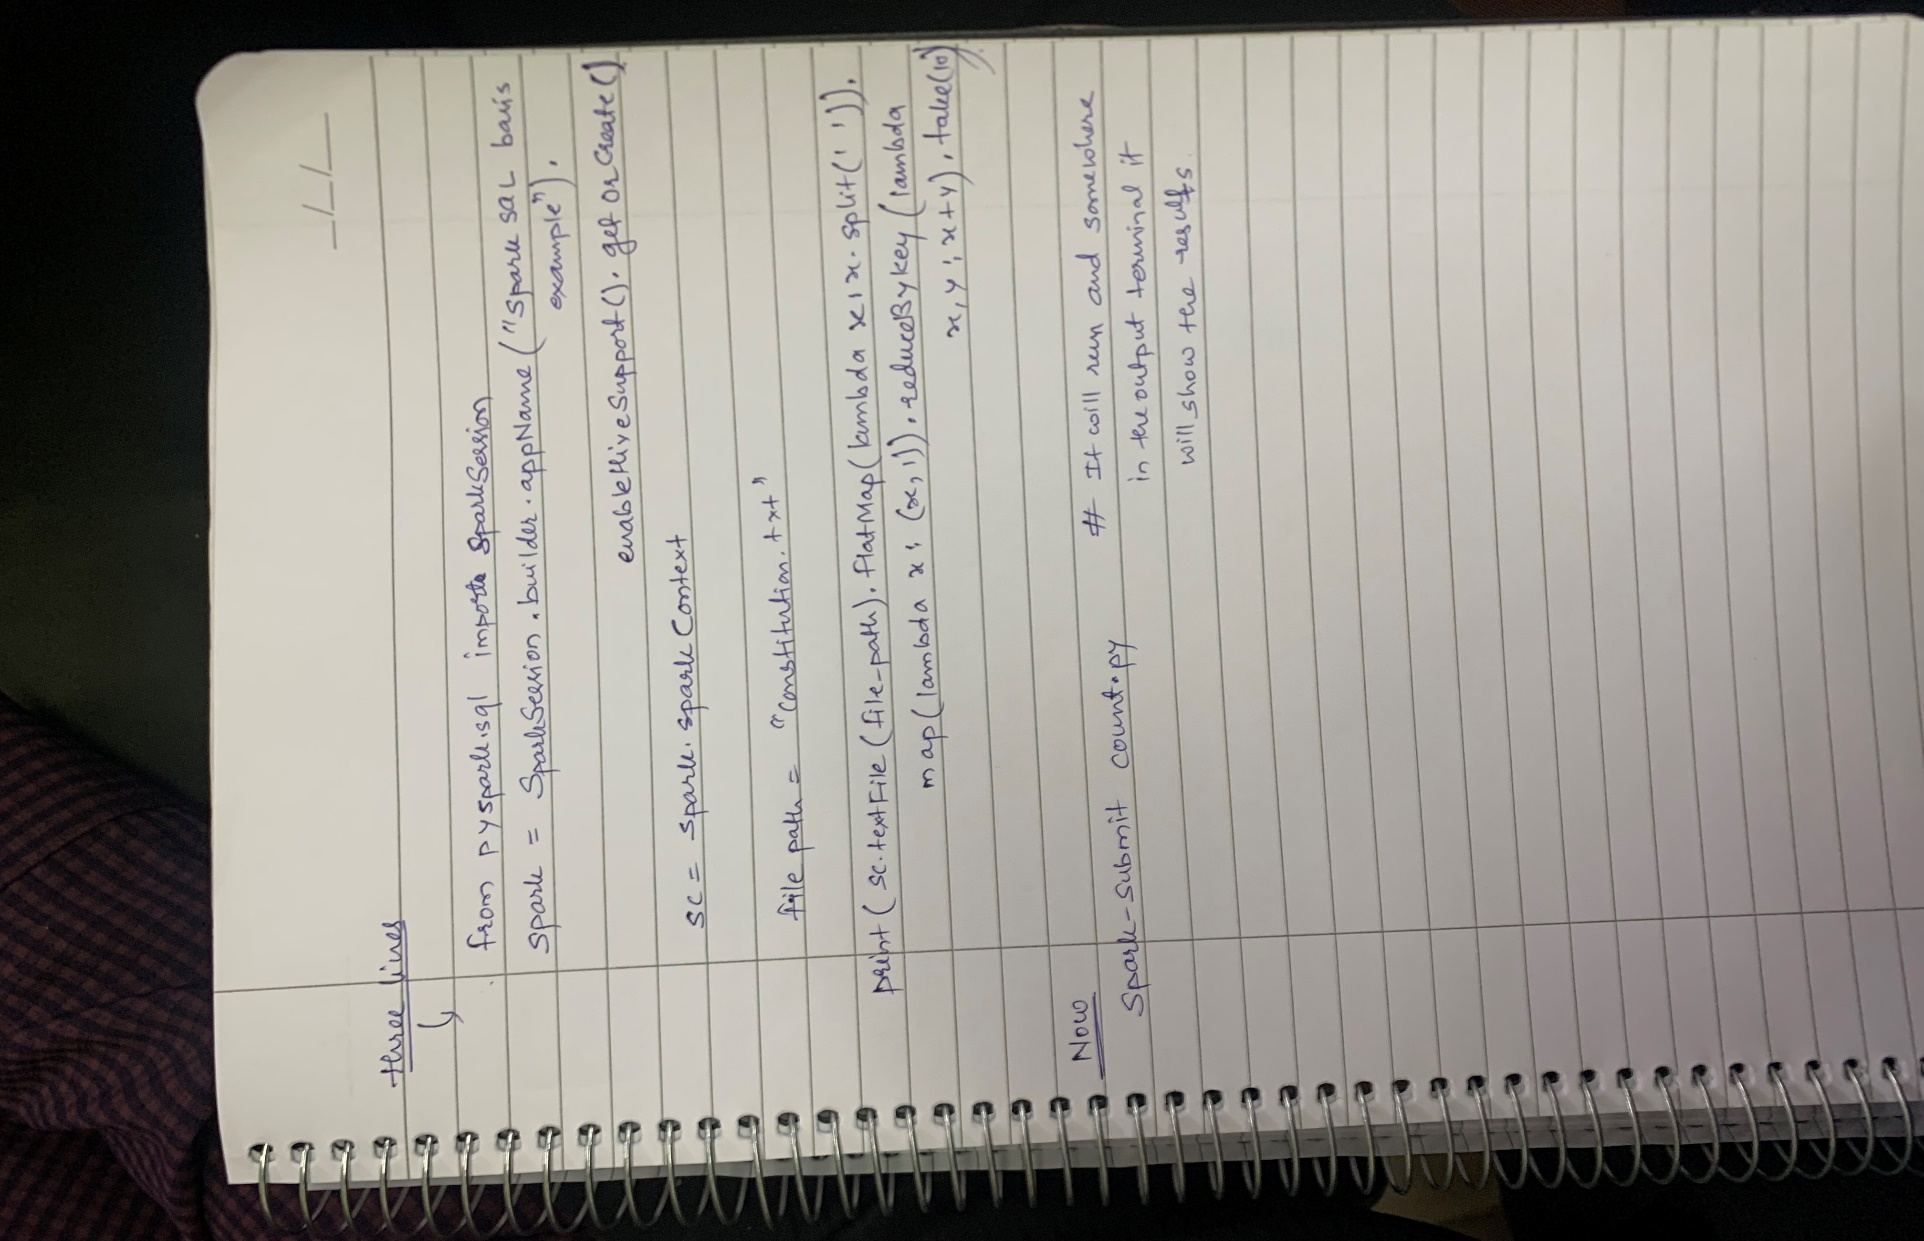 __/__/__
three lines
from pyspark.sql import SparkSession
spark = SparkSession.builder.appName("Spark SQL basis
example").
enableHiveSupport().getOrCreate()
sc = spark.sparkContext
file path = "Constitution.txt"
print(sc.textFile(file-path).flatMap(lambda x: x.split(' ')).
map(lambda x: (x,1)).reduceByKey(lambda
x,y: x+y).take(10))
Now
Spark-submit count.py # It will run and somewhere
in the output terminal it
will show the results.